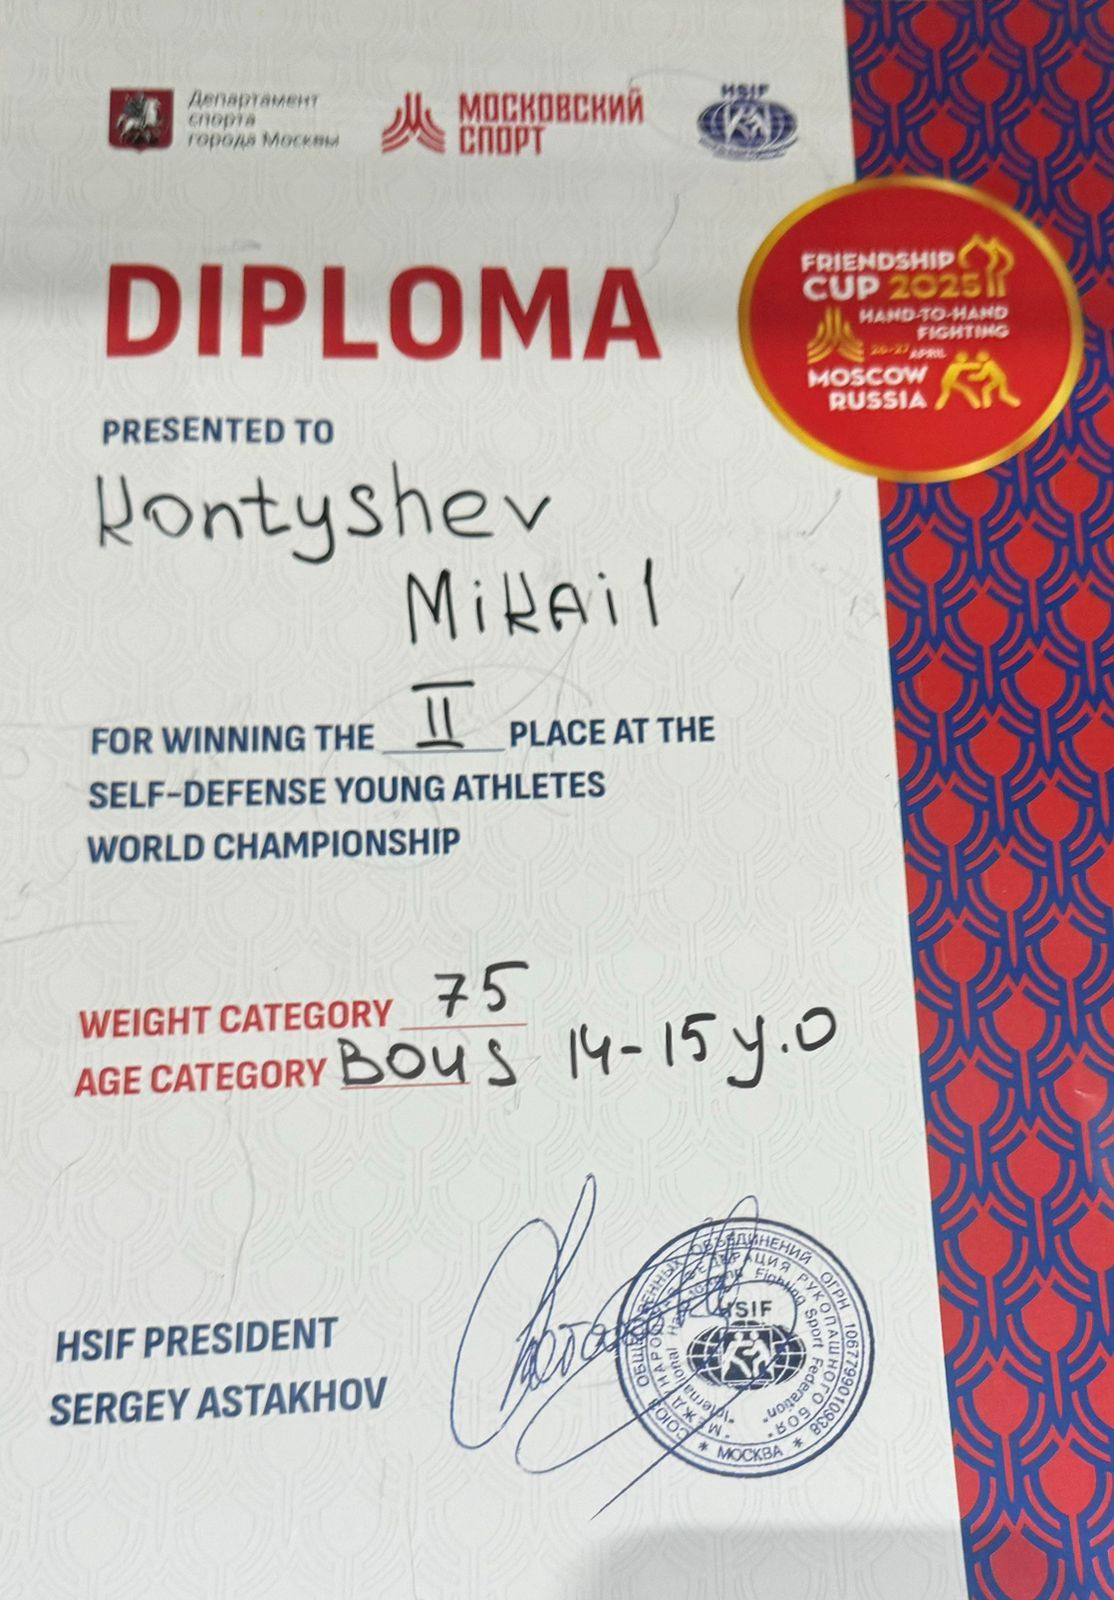 Департамент
спорта
города Москвы
МОСКОВСКИЙ
СПОРТ
HSIF
FRIENDSHIP
CUP 2025
HAND-TO-HAND
FIGHTING
26-27 APRIL
MOSCOW
RUSSIA
DIPLOMA
PRESENTED TO
Kontyshev
Mikail
FOR WINNING THE II PLACE AT THE
SELF-DEFENSE YOUNG ATHLETES
WORLD CHAMPIONSHIP
WEIGHT CATEGORY 75
AGE CATEGORY BOYS 14-15 y.o
HSIF PRESIDENT
SERGEY ASTAKHOV
СОЮЗ ОБЩЕСТВЕННЫХ ОБЪЕДИНЕНИЙ ОГРН 1067799010938
"МЕЖДУНАРОДНАЯ ФЕДЕРАЦИЯ РУКОПАШНОГО БОЯ"
"International Hand-to-Hand Fighting Sport Federation"
HSIF
* МОСКВА *